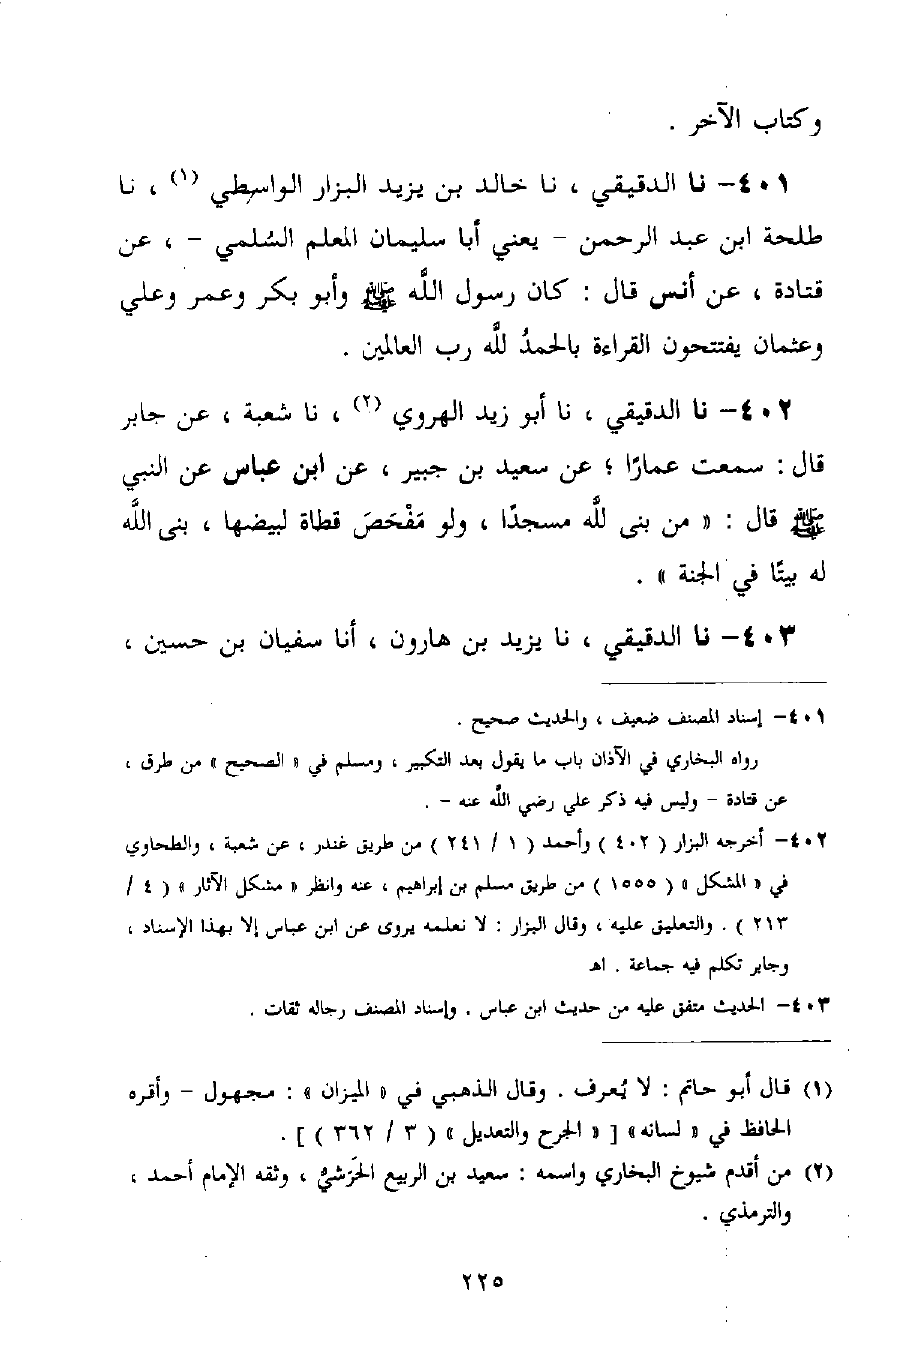 وكتاب الآخر .
٤٠١- نا الدقيقي ، نا خالد بن يزيد البزار الواسطي (١) ، نا
طلحة ابن عبد الرحمن - يعني أبا سليمان المعلم السُلمي - ، عن
قتادة ، عن أنس قال : كان رسول اللَّه ﷺ وأبو بكر وعمر وعلي
وعثمان يفتتحون القراءة بالحمدُ للَّه رب العالمين .
٤٠٢- نا الدقيقي ، نا أبو زيد الهروي (٢) ، نا شعبة ، عن جابر
قال : سمعت عمارًا ؛ عن سعيد بن جبير ، عن ابن عباس عن النبي
ﷺ قال : « من بنى للَّه مسجدًا ، ولو مَفْحَصَ قطاة لبيضها ، بنى اللَّه
له بيتًا في الجنة » .
٤٠٣- نا الدقيقي ، نا يزيد بن هارون ، أنا سفيان بن حسين ،
٤٠١- إسناد المصنف ضعيف ، والحديث صحيح .
رواه البخاري في الآذان باب ما يقول بعد التكبير ، ومسلم في « الصحيح » من طرق ،
عن قتادة - وليس فيه ذكر علي رضي اللَّه عنه - .
٤٠٢- أخرجه البزار ( ٤٠٢ ) وأحمد ( ١ / ٢٤١ ) من طريق غندر ، عن شعبة ، والطحاوي
في « المشكل » ( ١٥٥٥ ) من طريق مسلم بن إبراهيم ، عنه وانظر « مشكل الآثار » ( ٤ /
٢١٣ ) . والتعليق عليه ، وقال البزار : لا نعلمه يروى عن ابن عباس إلا بهذا الإسناد ،
وجابر تكلم فيه جماعة . اهـ
٤٠٣- الحديث متفق عليه من حديث ابن عباس . وإسناد المصنف رجاله ثقات .
(١) قال أبو حاتم : لا يُعرف . وقال الذهبي في « الميزان » : مجهول - وأقره
الحافظ في « لسانه» [ « الجرح والتعديل » ( ٣ / ٣٦٢ ) ] .
(٢) من أقدم شيوخ البخاري واسمه : سعيد بن الربيع الحَرَشيُّ ، وثقه الإمام أحمد ،
والترمذي .
٢٢٥